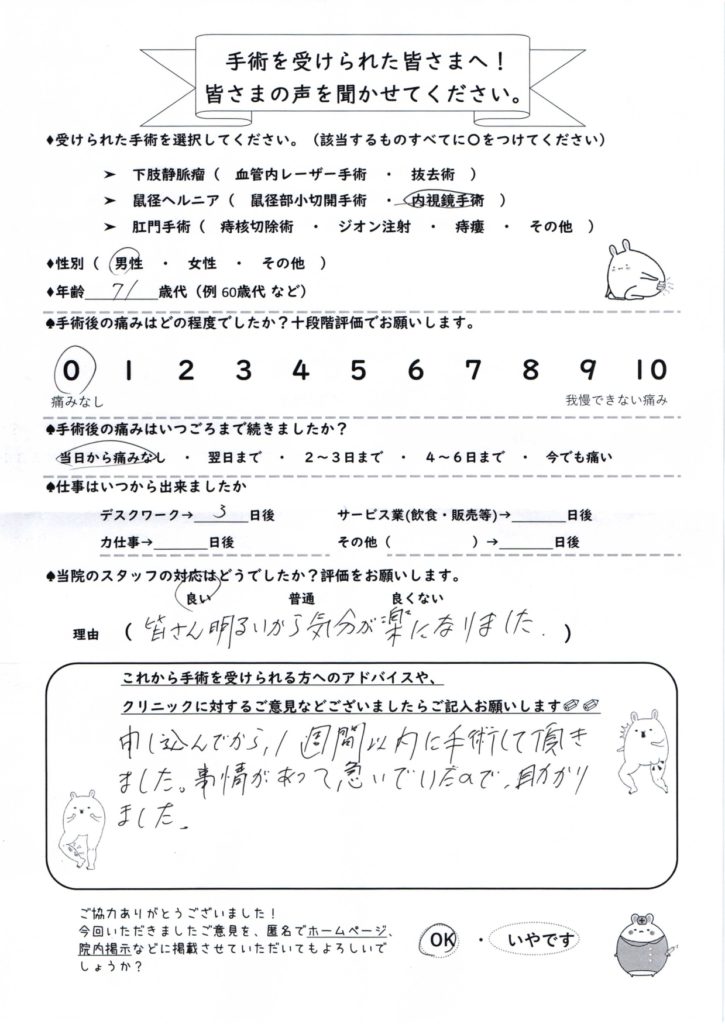 手術を受けられた皆さまへ！
皆さまの声を聞かせてください。
♦受けられた手術を選択してください。（該当するものすべてに〇をつけてください）
➤ 下肢静脈瘤（ 血管内レーザー手術 ・ 抜去術 ）
➤ 鼠径ヘルニア（ 鼠径部小切開手術 ・ 内視鏡手術 ）
➤ 肛門手術（ 痔核切除術 ・ ジオン注射 ・ 痔瘻 ・ その他 ）
♦性別（ 男性 ・ 女性 ・ その他 ）
♦年齢 71 歳代（例 60歳代 など）
♠手術後の痛みはどの程度でしたか？十段階評価でお願いします。
0 1 2 3 4 5 6 7 8 9 10
痛みなし 我慢できない痛み
♠手術後の痛みはいつごろまで続きましたか？
当日から痛みなし ・ 翌日まで ・ 2～3日まで ・ 4～6日まで ・ 今でも痛い
♠仕事はいつから出来ましたか
デスクワーク→ 3 日後 サービス業(飲食・販売等)→ 日後
力仕事→ 日後 その他（ ）→ 日後
♠当院のスタッフの対応はどうでしたか？評価をお願いします。
良い 普通 良くない
理由 （ 皆さん明るいから気分が楽になりました. ）
これから手術を受けられる方へのアドバイスや、
クリニックに対するご意見などございましたらご記入お願いします
申し込んでから,1週間以内に手術して頂き
ました。事情があって,急いでいたので,助かり
ました.
ご協力ありがとうございました！
今回いただきましたご意見を、匿名でホームページ、
院内掲示などに掲載させていただいてもよろしいで
しょうか？
OK ・ いやです